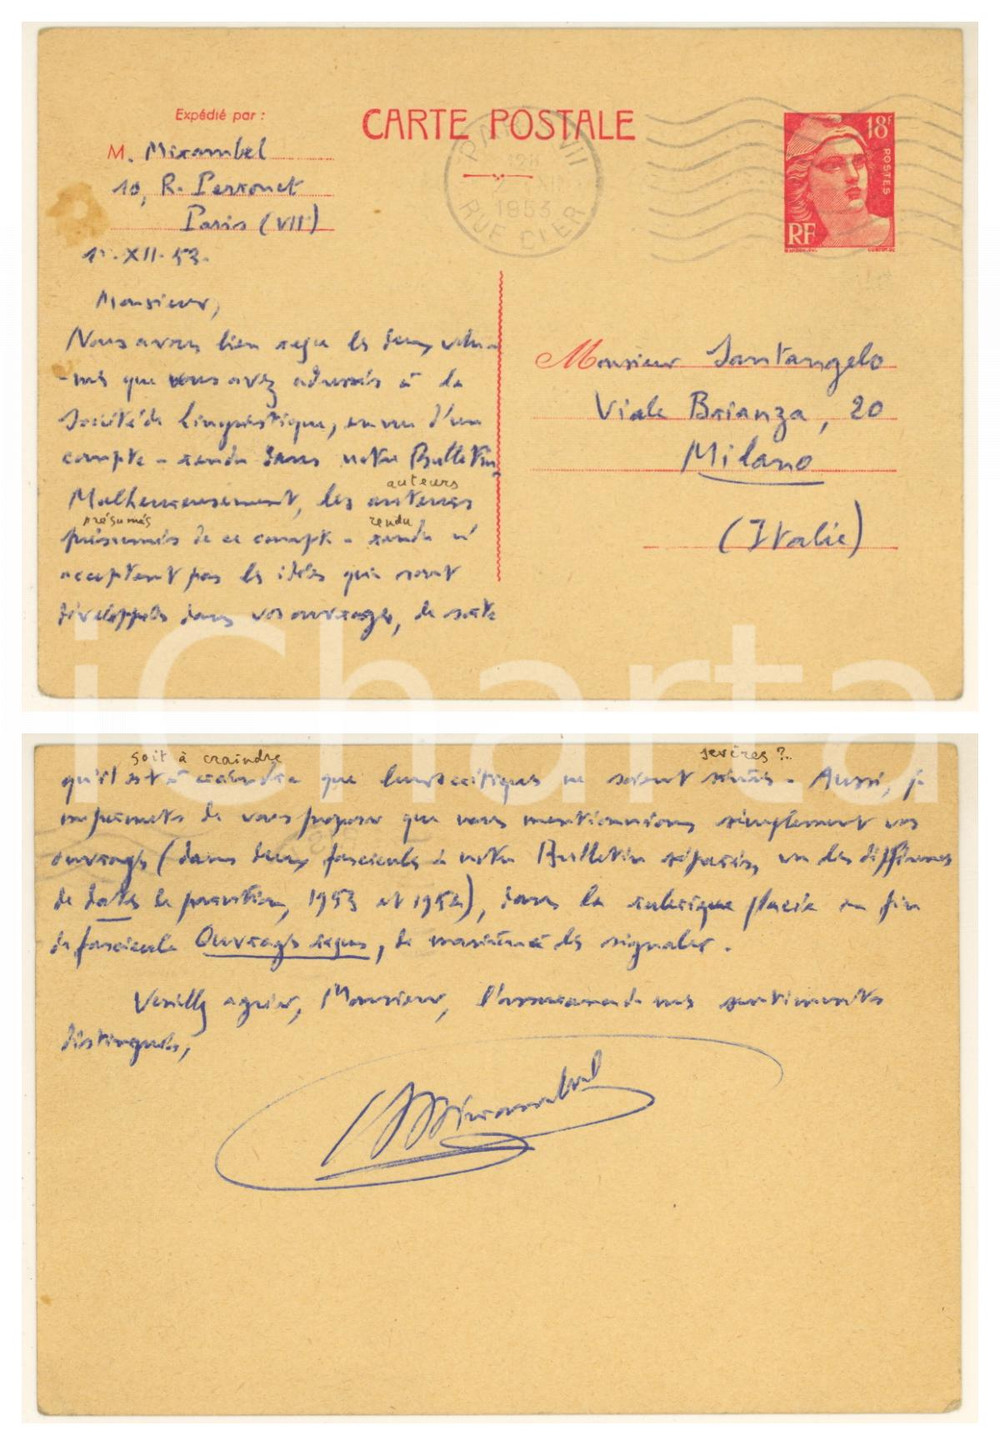 Expédié par :
CARTE POSTALE
18F
POSTES
RF
PARIS VII
1953
RUE CLER
M. Mirambel
10, R. Perronet
Paris (VIIe)
1er-XII-53.
Monsieur,
Nous avons bien reçu les deux volu-
-mes que vous avez adressés à la
Société de Linguistique, en vue d'un
compte-rendu dans notre Bulletin.
auteurs
Malheureusement, les auteurs
présumés rendu
présumés de ce compte-rendu n'
acceptent pas les idées qui sont
développées dans vos ouvrages, de sorte
Monsieur Santangelo
Viale Brianza, 20
Milano
(Italie)
iCharta
soit à craindre sevères ?..
qu'il est à craindre que leurs critiques ne soient sévères. Aussi, je
me permets de vous proposer que nous mentionnions simplement vos
ouvrages (dans deux fascicules de notre Bulletin séparés, vu les différences
de dates de parution, 1953 et 1954), dans la rubrique placée en fin
de fascicule Ouvrages reçus, de manière à les signaler.
Veuillez agréer, Monsieur, l'assurance de mes sentiments
distingués,
Mirambel